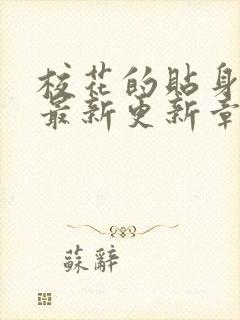 校花的贴身
最新更新章
蘇辭